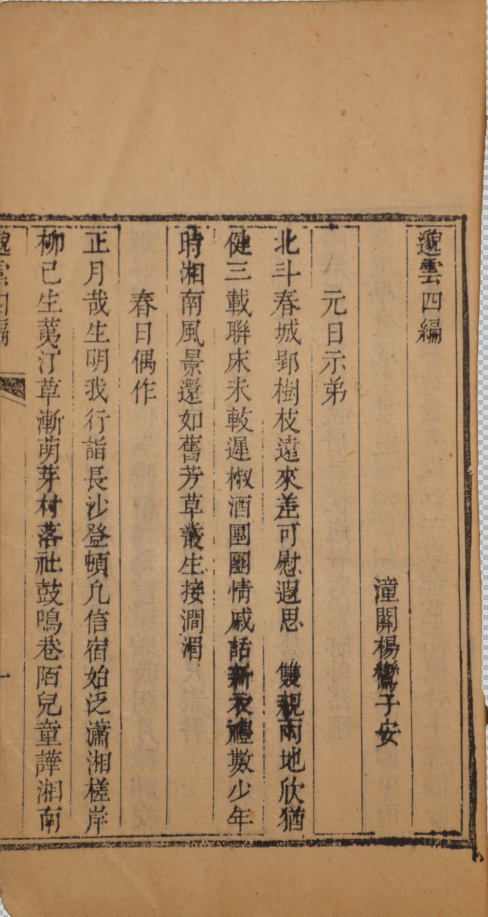 邈雲四編
潼關楊鸞子安
元日示弟
北斗春城郢樹枝遠來差可慰遐思　雙親兩地欣猶
健三載聯床未較遲椒酒團圞情戚話新衣禮數少年
時湘南風景還如舊芳草叢生接澗湄
春日偶作
正月哉生明我行詣長沙登頓凡信宿始泛瀟湘槎岸
柳已生荑汀草漸萌芽村落社鼓鳴巷陌兒童譁湘南
邈雲四編
一